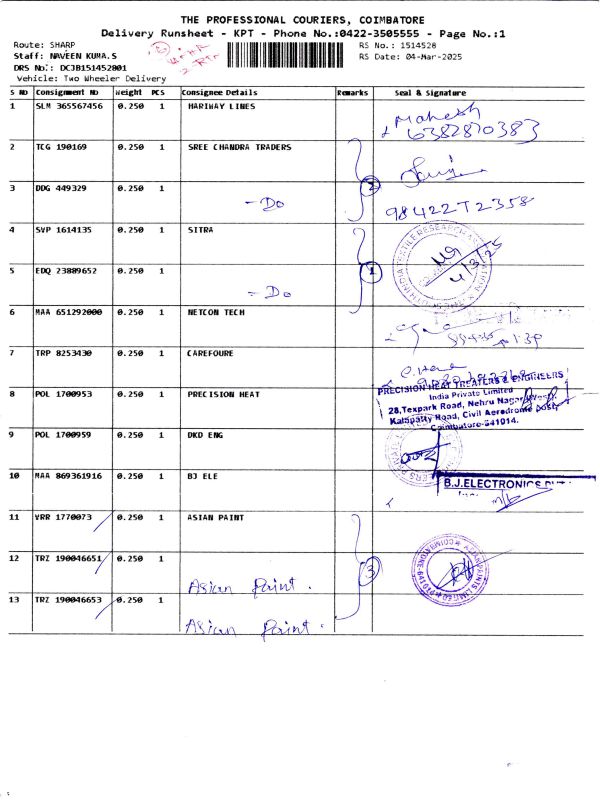 THE PROFESSIONAL COURIERS, COIMBATORE
Delivery Runsheet - KPT - Phone No.:0422-3505555 - Page No.:1
Route: SHARP
RS No.: 1514528
Staff: NAVEEN KUMA.S
RS Date: 04-Mar-2025
DRS No.: DCJB151452801
Vehicle: Two Wheeler Delivery
S No Consignment No Weight PCS Consignee Details Remarks Seal & Signature
1 SLM 365567456 0.250 1 HARIWAY LINES
Mahesh
6382870383
2 TCG 190169 0.250 1 SREE CHANDRA TRADERS
3 DDG 449329 0.250 1
- Do
2
4 SVP 1614135 0.250 1 SITRA
4/3/25
5 EDQ 23889652 0.250 1
- Do
1
6 MAA 651292000 0.250 1 NETCON TECH
7 TRP 8253430 0.250 1 CAREFOURE
8 POL 1700953 0.250 1 PRECISION HEAT
PRECISION HEAT TREATERS & ENGINEERS
India Private Limited
28,Texpark Road, Nehru Nagar (West),
Kalapatty Road, Civil Aerodrome post,
Coimbatore-641014.
9 POL 1700959 0.250 1 DKD ENG
10 MAA 869361916 0.250 1 BJ ELE
B.J.ELECTRONICS
11 VRR 1770073 0.250 1 ASIAN PAINT
12 TRZ 190046651 0.250 1
Asian Paint.
3
13 TRZ 190046653 0.250 1
Asian Paint.